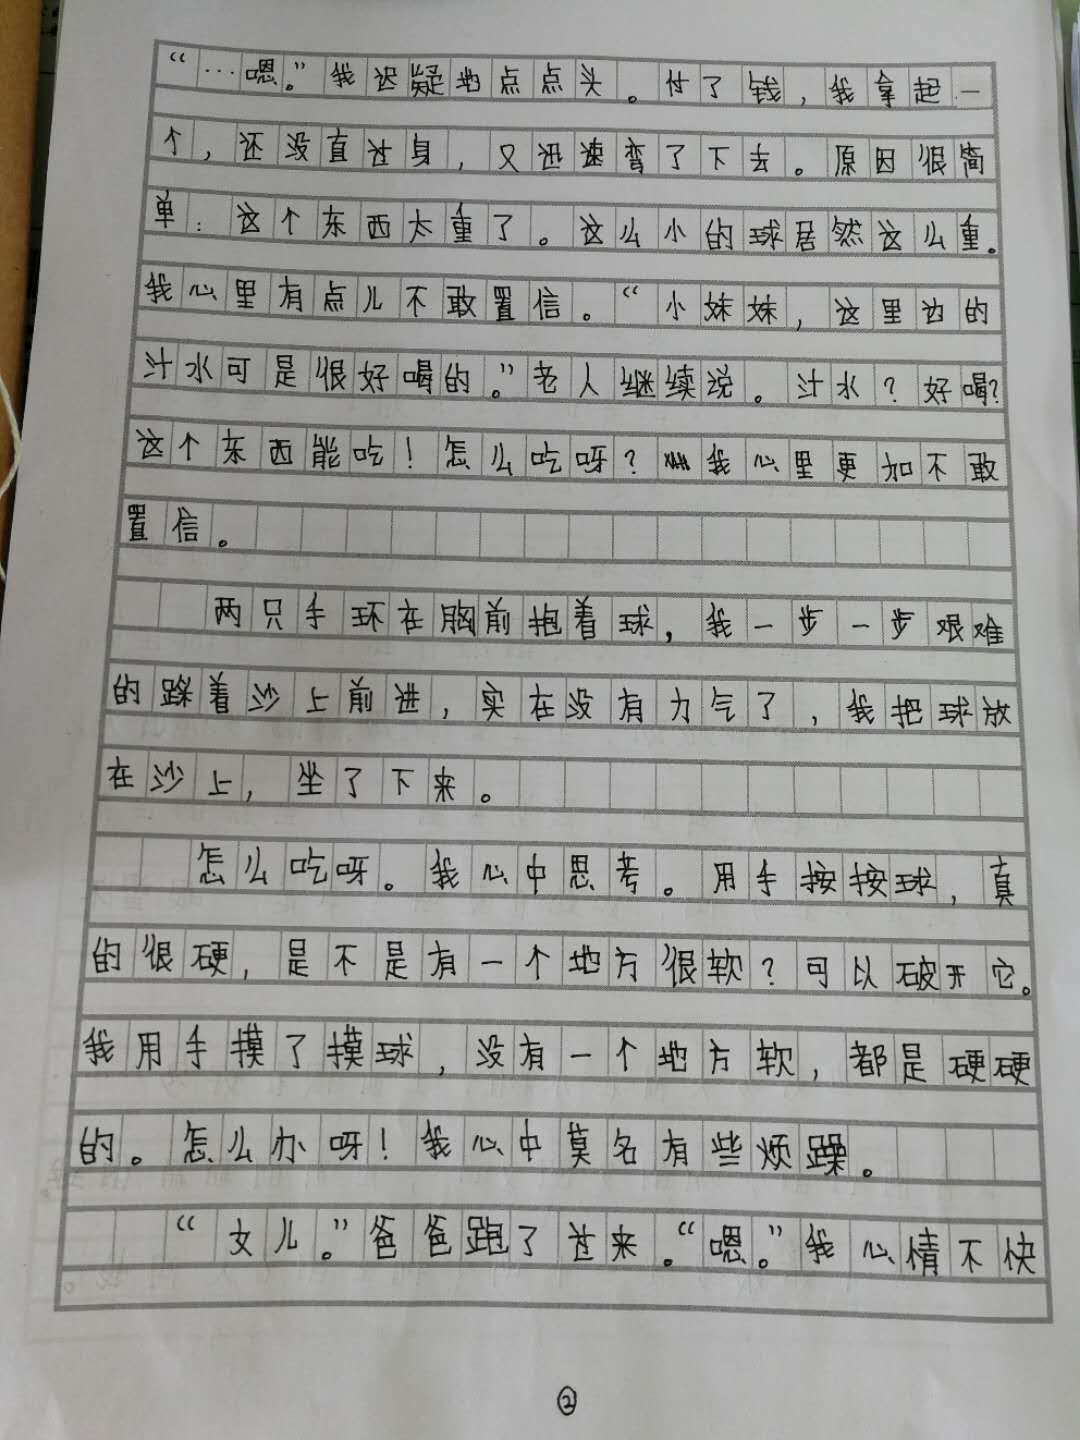 “…嗯。”我迟疑地点点头。付了钱，我拿起一
个，还没直过身，又迅速弯了下去。原因很简
单：这个东西太重了。这么小的球居然这么重。
我心里有点儿不敢置信。“小妹妹，这里边的
汁水可是很好喝的。”老人继续说。汁水？好喝？
这个东西能吃！怎么吃呀？我心里更加不敢
置信。
两只手环在胸前抱着球，我一步一步艰难
的踩着沙上前进，实在没有力气了，我把球放
在沙上，坐了下来。
怎么吃呀。我心中思考。用手按按球，真
的很硬，是不是有一个地方很软？可以破开它。
我用手摸了摸球，没有一个地方软，都是硬硬
的。怎么办呀！我心中莫名有些烦躁。
“女儿。”爸爸跑了过来。“嗯。”我心情不快
②